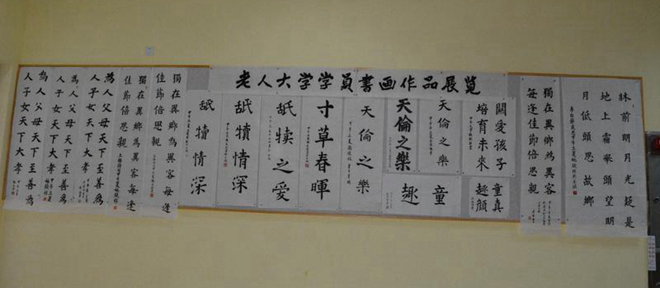 老人大学学员書画作品展览
牀前明月光疑是
地上霜举頭望明
月低頭思故鄉
獨在異鄉為異客
每逢佳節倍思親
關愛孩子
培育未來
童真
趣顏
天倫之樂
童
天倫之樂
趣
天倫之樂
寸草春暉
舐犊之愛
舐犢情深
舐犢情深
獨在異鄉為異客每逢
佳節倍思親
獨在異鄉為異客每逢
佳節倍思親
為人父母天下至善為
人子女天下大孝
為人父母天下至善為
人子女天下大孝
為人父母天下至善為
人子女天下大孝